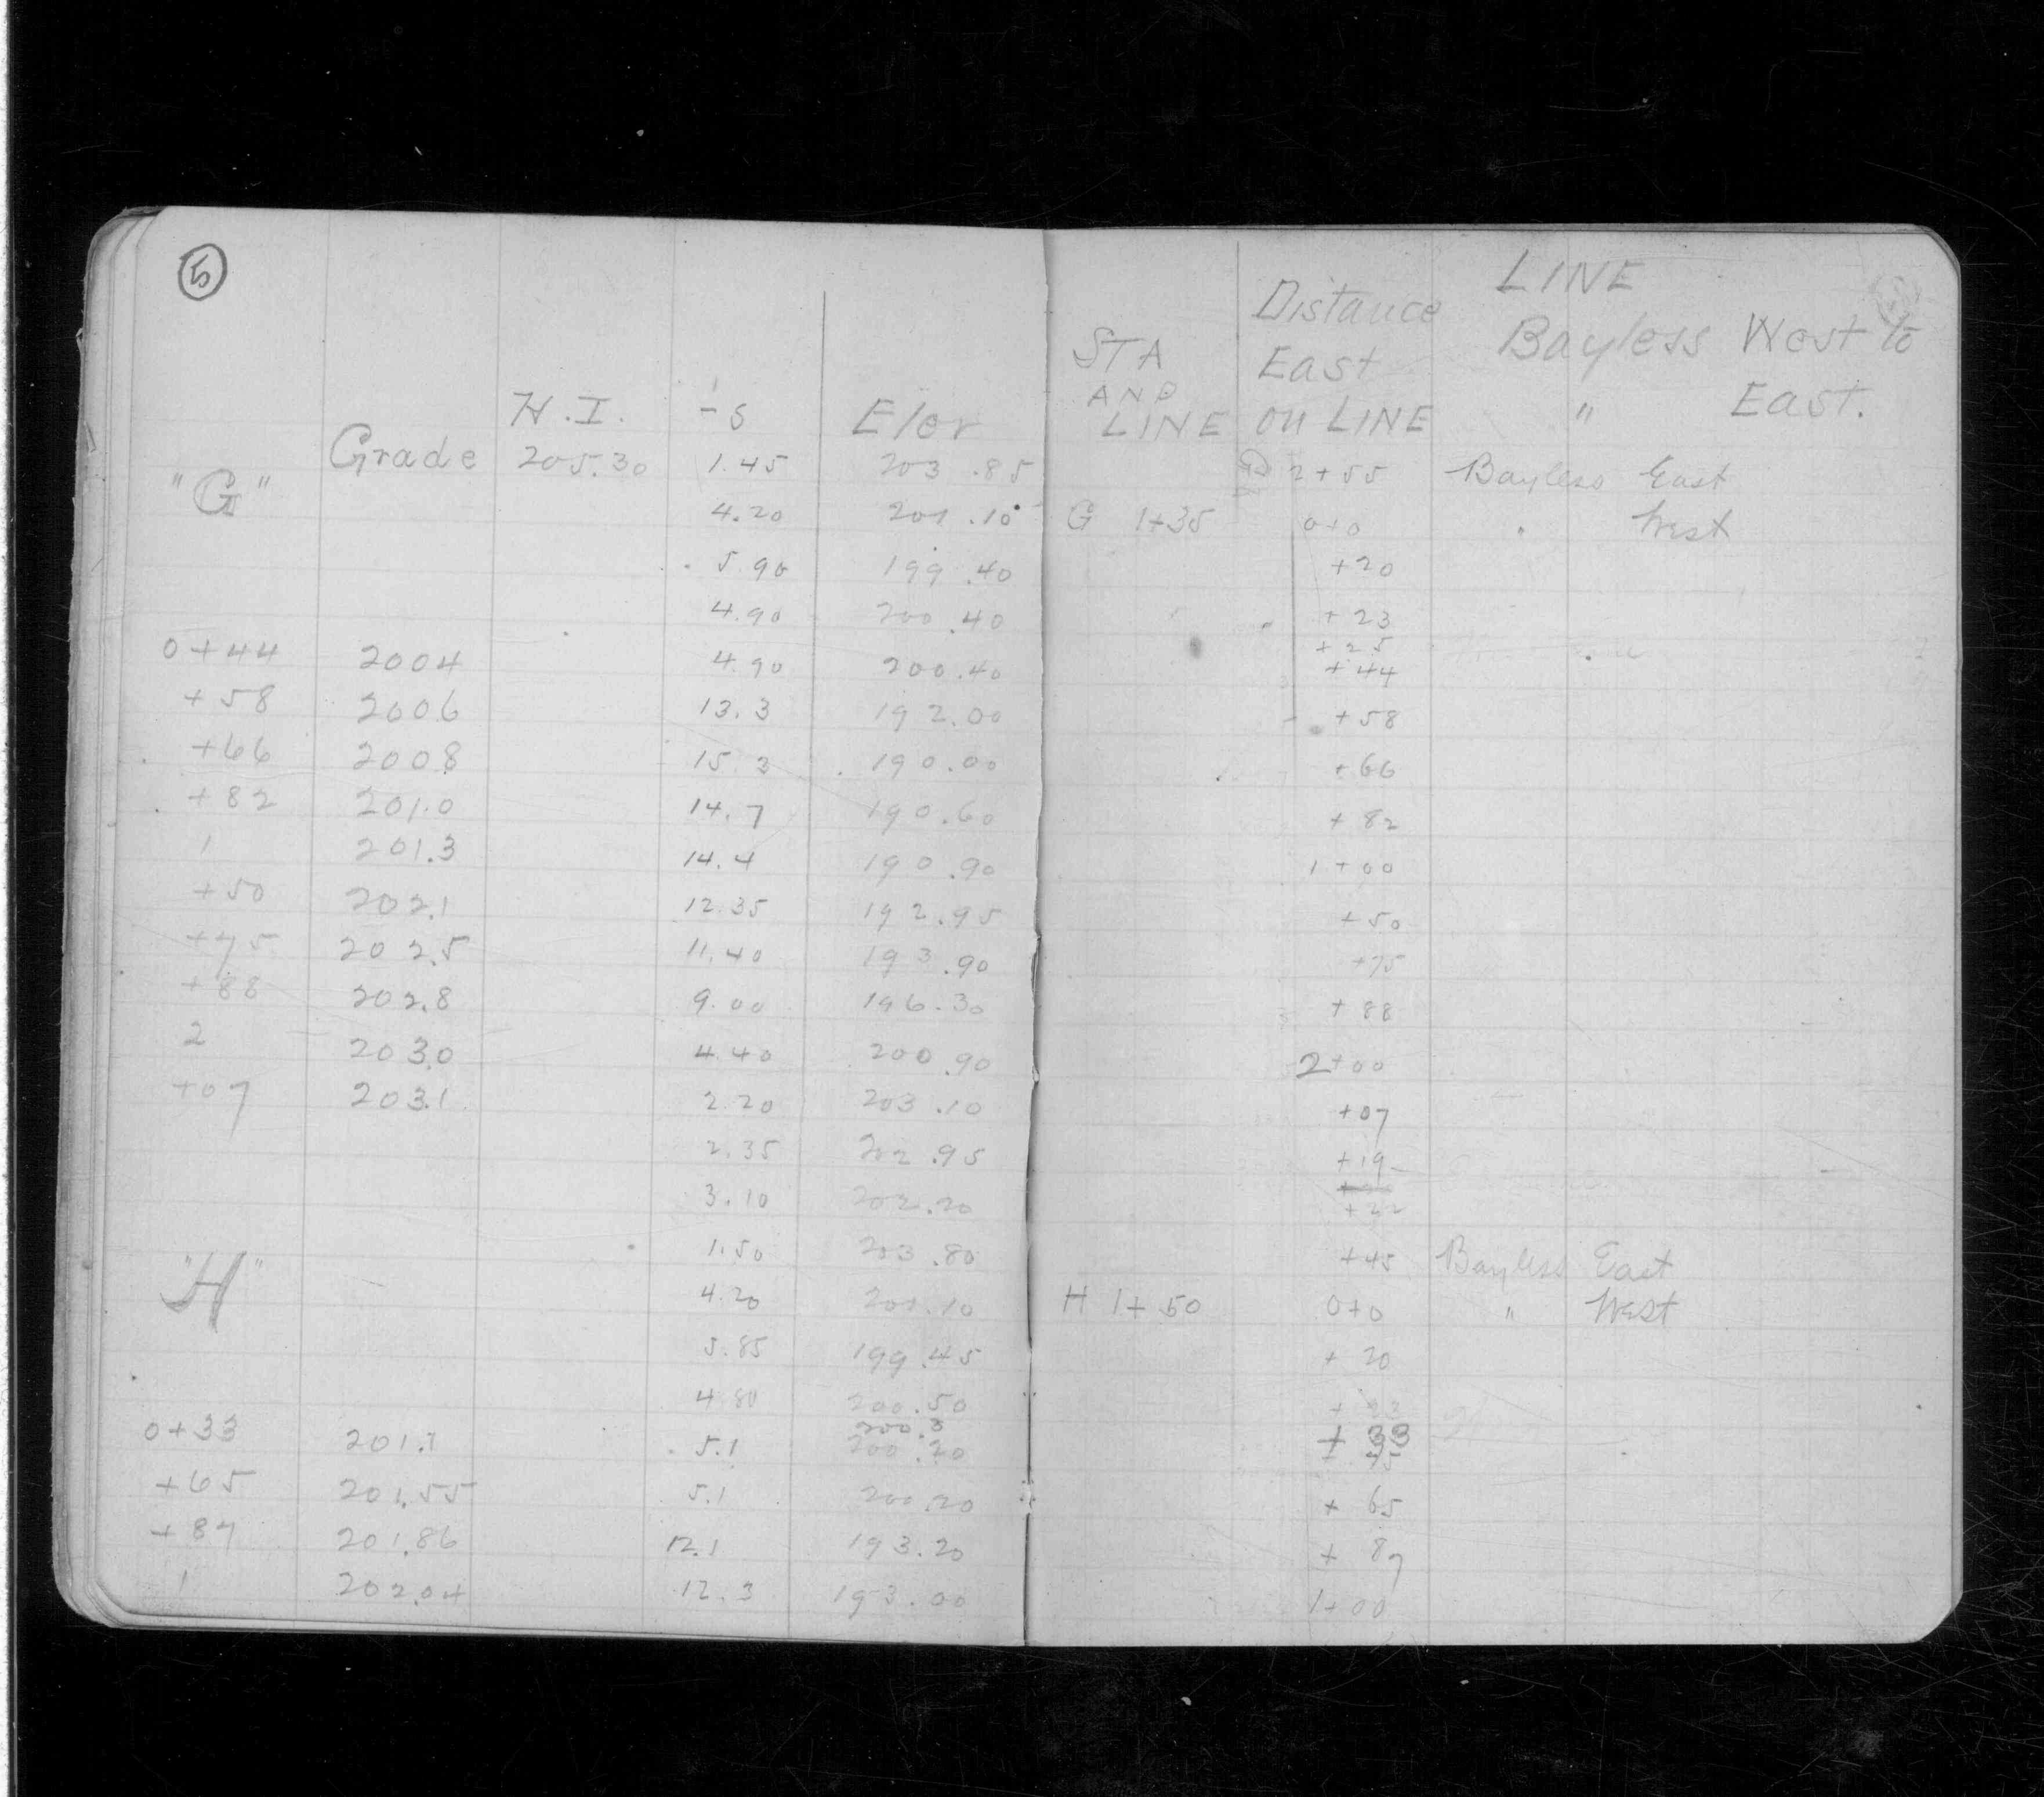 5
"G" Grade H.I. - S Elev
205.30 1.45 203.85
4.20 201.10
5.90 199.40
4.90 200.40
0+44 2004 4.90 200.40
+58 2006 13.3 192.00
+66 2008 15.3 190.00
+82 201.0 14.7 190.60
1 201.3 14.4 190.90
+50 202.1 12.35 192.95
+75 202.5 11.40 193.90
+88 202.8 9.00 196.30
2 203.0 4.40 200.90
+07 203.1 2.20 203.10
2.35 202.95
3.10 202.20
1.50 203.80
"H" 4.20 201.10
5.85 199.45
4.80 200.50
0+33 201.1 5.1 200.20
+65 201.55 5.1 200.20
+87 201.86 12.1 193.20
1 202.04 12.3 193.00
STA AND LINE
Distance East on LINE
LINE
Bayless West to
" East.
2+55 Bayless East
G 1+35 0+0 " West
+20
+23
+25
+44
+58
+66
+82
1+00
+50
+75
+88
2+00
+07
+19
+22
+45 Bayless East
H 1+50 0+0 " West
+20
+33
+65
+87
1+00